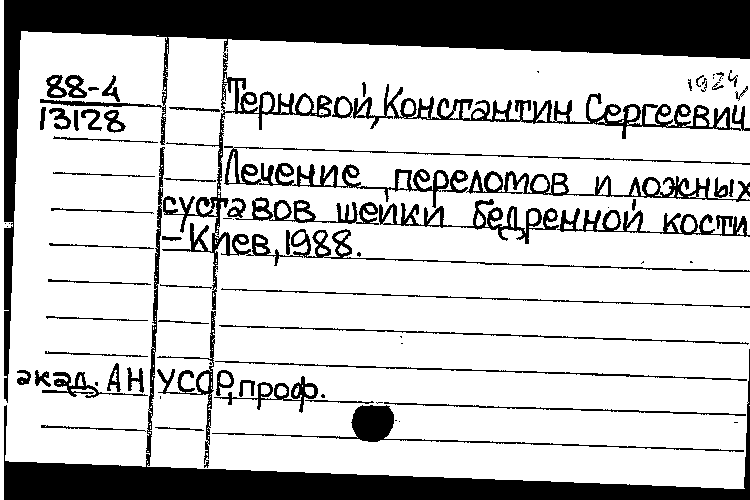 1924
88-4
13128
Терновой, Константин Сергеевич
Лечение переломов и ложных
суставов шейки бедренной кости.
– Киев, 1988.
акад. АН УССР, проф.